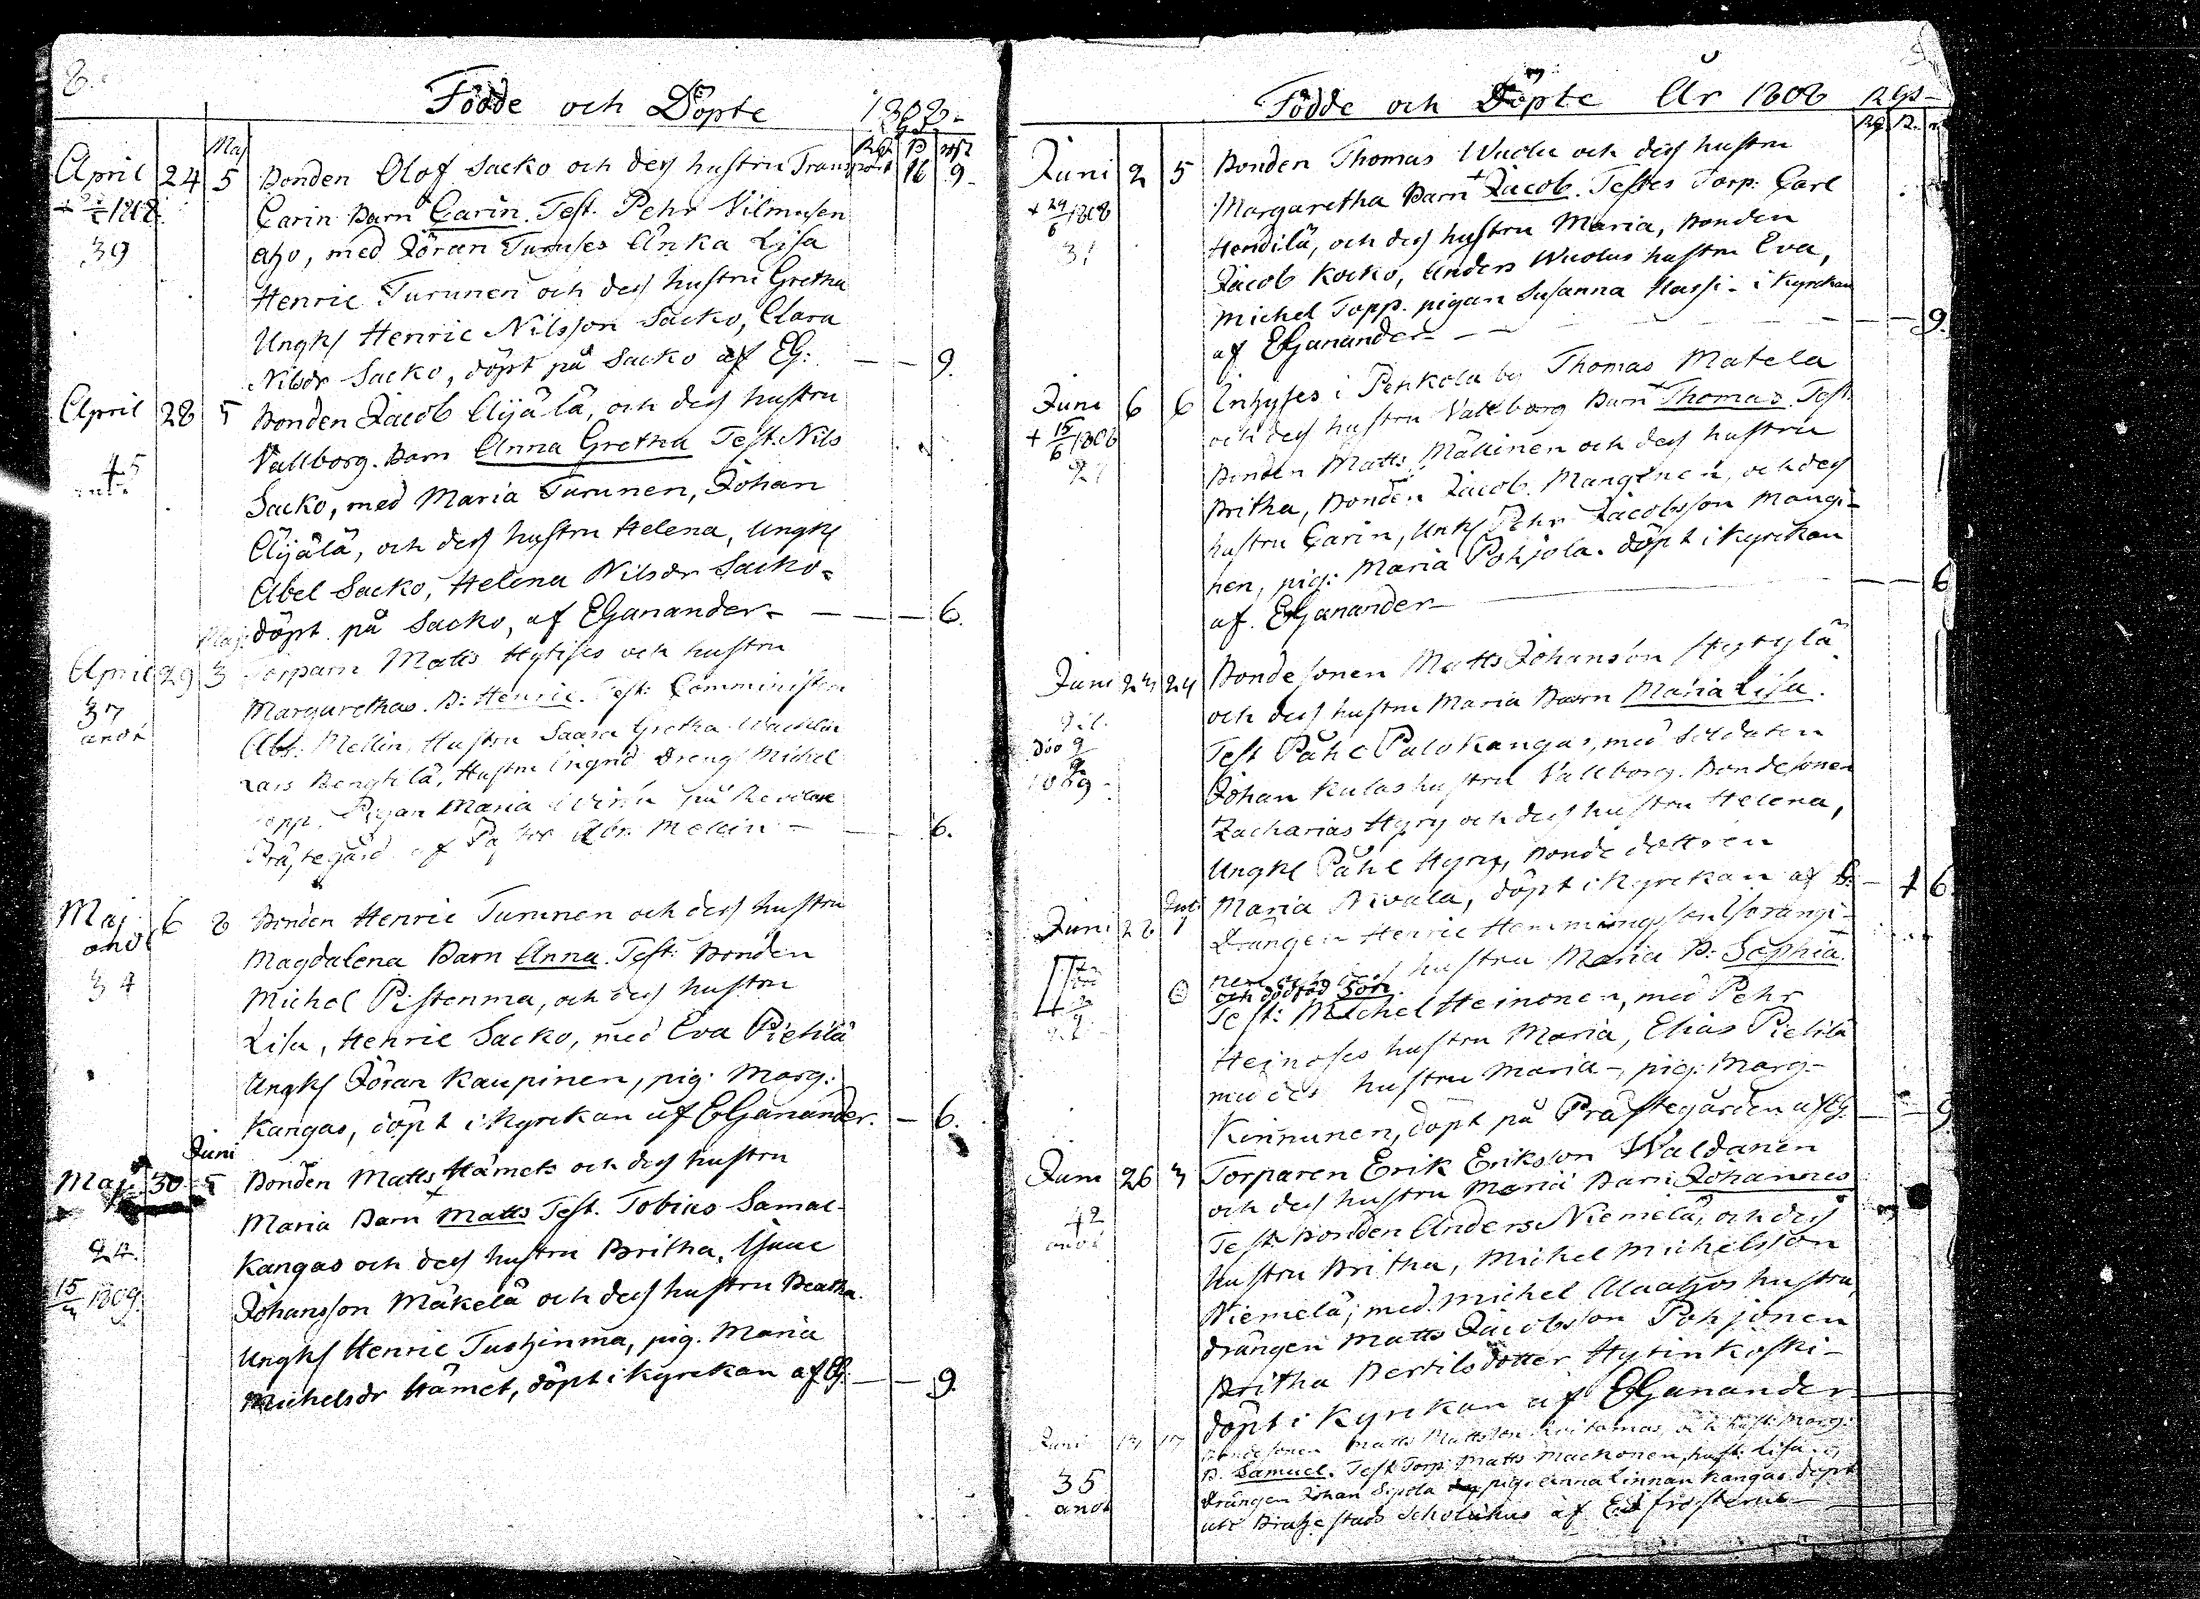 8.
Födde och Döpte 1808.
Rgs
Maj Rdr ß rst
April 24 5 Bonden Olof Sacko och des hustru Transport 16 9.
+ 1808. Carin Barn Carin. Test. Pehr Vilmusen
39 aho, med Jöran Turuses Enka Lisa
Henric Turunen och des hustru Gretha
Ungk Henric Nilsson Sacko, Clara
Nilsdr Sacko, döpt på Sacko af EG: — — 9.
April 28 5 Bonden Jacob Äijälä, och des hustru
Vallborg. Barn Anna Gretha Test. Nils
45
Sacko, med Maria Turunen, Johan
Äijälä, och des hustru Helena, Ungk
Abel Sacko, Helena Nilsdr Sacko
döpt på Sacko, af EGanander — — 6.
Maj
April 29 3 Torparn Matts Hytises och hustru
37 Margarethas. B: Henric. Test: Comministern
anot Abr: Mellin, Hustru Saara Gretha
Lars Bengtilä, Hustru Ingrid Dreng Michel
Topp. Pigan Maria på Revolax
Prästegård af Past Abr. Mellin — 6.
Maj 6 8 Bonden Henric Turunen och des hustru
anot Magdalena Barn Anna. Test: Bonden
34 Michel Pistenma, och des hustru
Lisa, Henric Sacko, med Eva Pietilä
Ungk Jöran Kaupinen, pig. Marg:
Kangas, döpt i Kyrckan af EGanander. — 6.
Juni
Maj 30 5 Bonden Matts Hämet och des hustru
Maria Barn Matts Test. Tobias Samal-
24. kangas och des hustru Britha, Isaac
15/3 1809. Johansson Mäkelä och des hustru Beatha.
Ungk Henric Tushinma, pig. Maria
Michelsdr Hämet, döpt i Kyrckan af EG: — — 9.
Födde och Döpte År 1808 Rgs
Rdr ß. rst
Juni 2 5 Bonden Thomas Wuolu och des hustru
+ 29/6 1808 Margaretha Barn Jacob. Testes Torp: Carl
31 Hendilä, och des hustru Maria, Bonden
Jacob Kocko, Anders Wuolus hustru Eva,
Michel Topp. pigan Susanna Hassi i Kyrckan
af EGanander — — 9.
Juni 6 6 Inhyses i Penkola by Thomas Matela
+ 15/6 1808 och des hustru Vallborg Barn Thomas. Test:
Bonden Matts Mällinen och des hustru
Britha, Bonden Jacob Manginen, och des
hustru Carin, Unk Pehr Jacobsson Mangi-
nen, pig: Maria Pohjola. döpt i Kyrckan
af. EGanander — — 6
Juni 23 24 Bondesonen Matts Johanson Hyrylä
och des hustru Maria Barn Maria Lisa.
Test Påhl Palokangas, med Soldaten
Johan Kulas hustru Vallborg. Bondesonen
Zacharias Hyry och des hustru Helena,
Ungkl Påhl Hyry, Bonde dottren
Maria Nivala, döpt i Kyrckan af — 6.
Juli
Juni 28 1 Drängen Henric Hemmingsson
hustru Maria B: Sophia.
och dödfödd Son.
Test: Michel Heinonen, med Pehr
Heinoses hustru Maria, Elias Pietilä
med des hustru Maria, pig: Marg-
Kinnunen, döpt på Prästegården af EG. — 9
Juni 26 3 Torparen Erik Eriksson Waldanen
och des hustru Maria Barn Johannes
42 Test. Bonden Anders Niemelä, och des
anot hustru Britha, Michel Michelsson
Niemelä, med Michel Alaahos hustru,
drängen Matts Jacobsson Pohjonen
Britha Bertilsdotter Hytinkoski
döpt i Kyrckan af EGanander
Juni 13 17 Bondesonen Matts Mattsson och hust. Marg:
35 B. Samuel. Test Torp: Matts Mackonen, hust: Lisa.
anot drängen Johan Sipola pig: Anna Linnankangas döpt
uti Brahestads Scholæhus af Frosterus